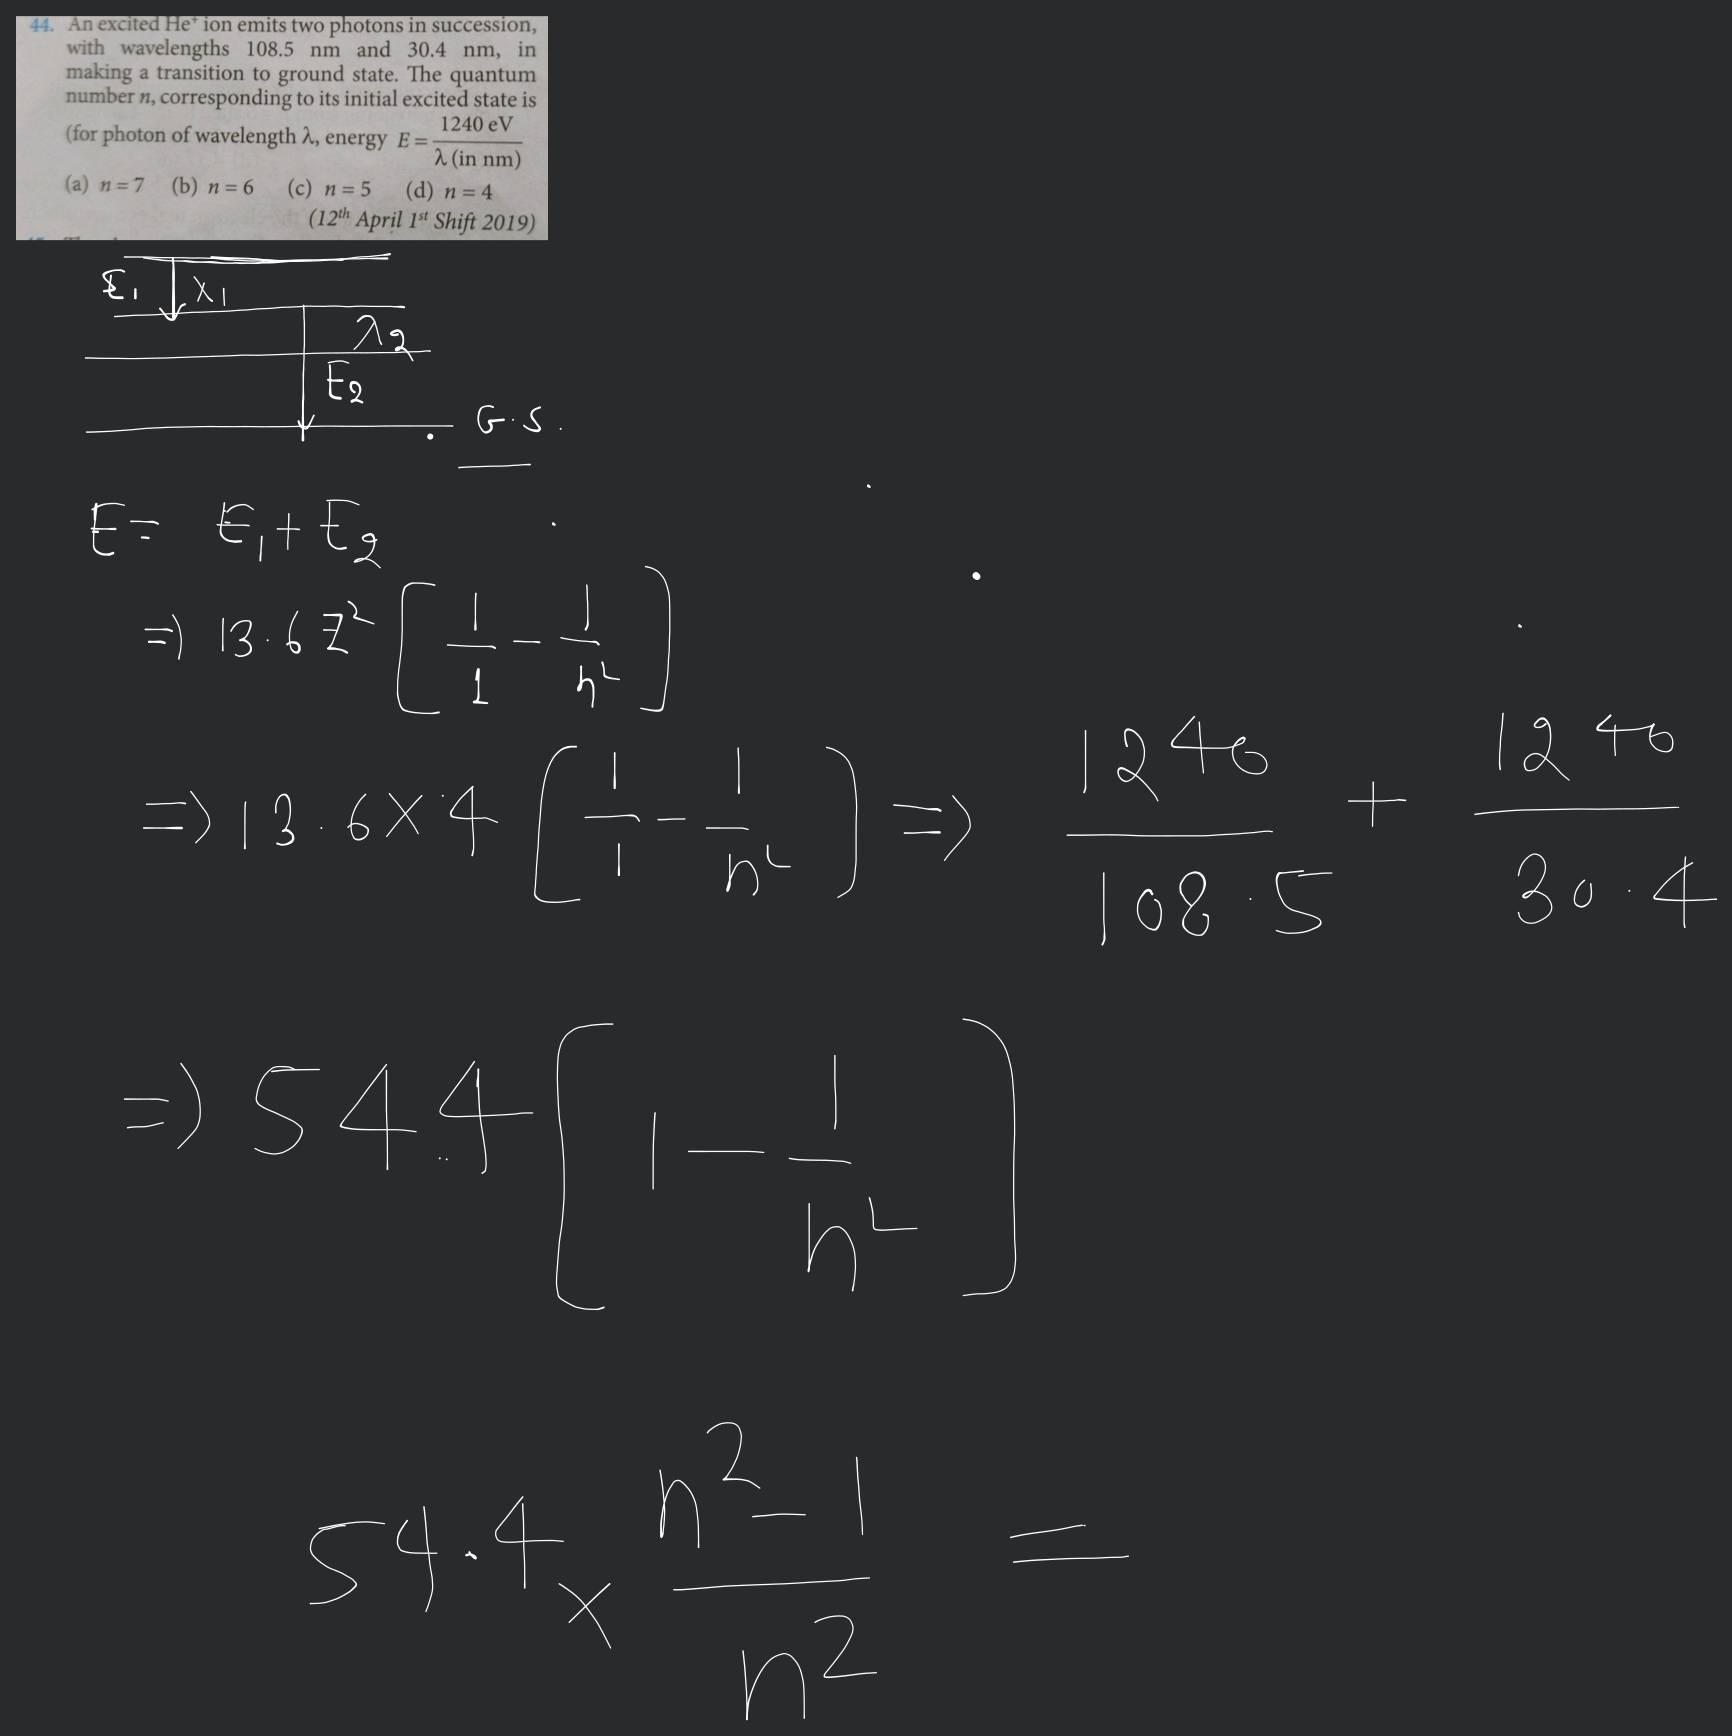 44. An excited He⁺ ion emits two photons in succession,
with wavelengths 108.5 nm and 30.4 nm, in
making a transition to ground state. The quantum
number n, corresponding to its initial excited state is
(for photon of wavelength λ, energy E = 1240 eV / λ (in nm)
(a) n = 7 (b) n = 6 (c) n = 5 (d) n = 4
(12th April 1st Shift 2019)
E₁ λ₁
λ₂
E₂
G.S.
E = E₁ + E₂
⇒ 13.6 Z² [1/1 - 1/n²]
⇒ 13.6 × 4 [1/1 - 1/n²] ⇒ 1240/108.5 + 1240/30.4
⇒ 54.4 [1 - 1/n²]
54.4 × n² - 1 / n² =